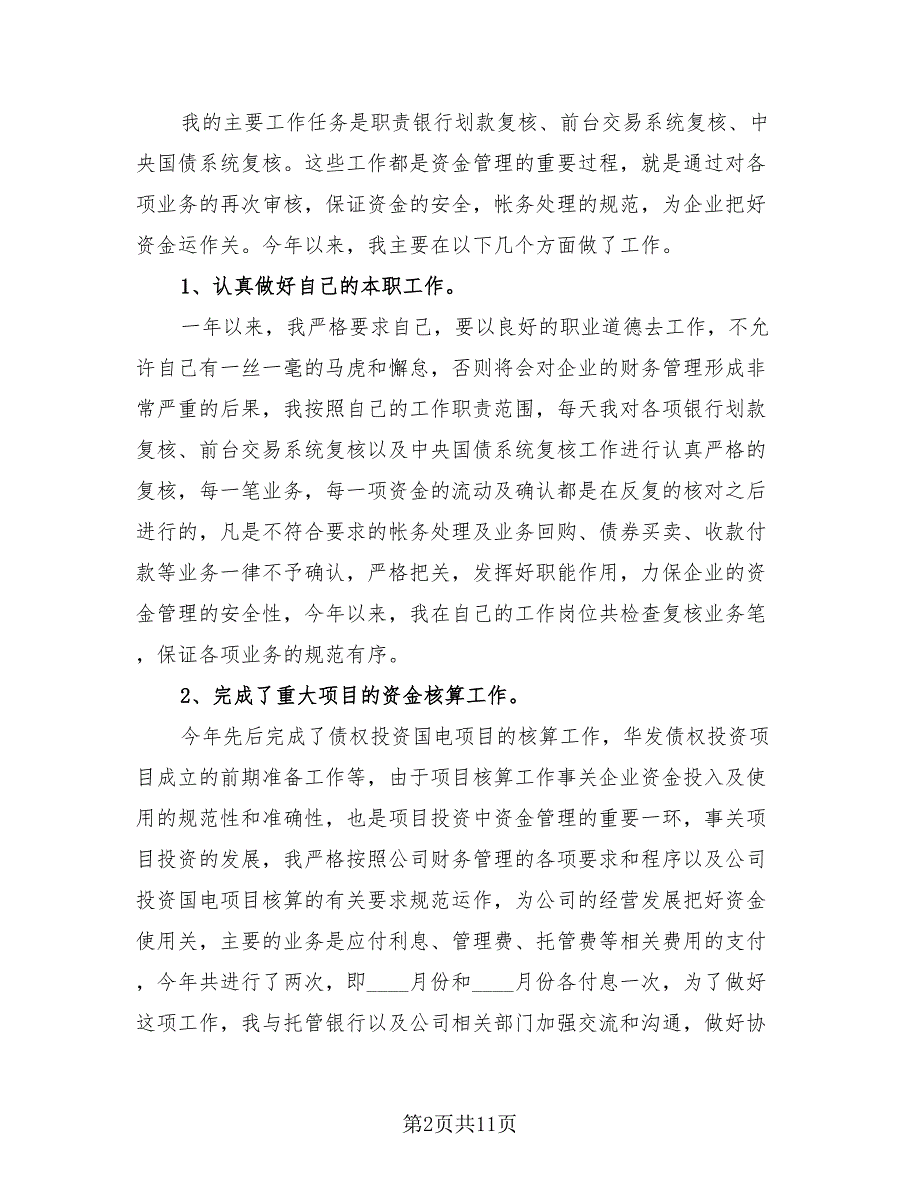 我的主要工作任务是职责银行划款复核、前台交易系统复核、中
央国债系统复核。这些工作都是资金管理的重要过程，就是通过对各
项业务的再次审核，保证资金的安全，帐务处理的规范，为企业把好
资金运作关。今年以来，我主要在以下几个方面做了工作。
1、认真做好自己的本职工作。
一年以来，我严格要求自己，要以良好的职业道德去工作，不允
许自己有一丝一毫的马虎和懈怠，否则将会对企业的财务管理形成非
常严重的后果，我按照自己的工作职责范围，每天我对各项银行划款
复核、前台交易系统复核以及中央国债系统复核工作进行认真严格的
复核，每一笔业务，每一项资金的流动及确认都是在反复的核对之后
进行的，凡是不符合要求的帐务处理及业务回购、债券买卖、收款付
款等业务一律不予确认，严格把关，发挥好职能作用，力保企业的资
金管理的安全性，今年以来，我在自己的工作岗位共检查复核业务笔
，保证各项业务的规范有序。
2、完成了重大项目的资金核算工作。
今年先后完成了债权投资国电项目的核算工作，华发债权投资项
目成立的前期准备工作等，由于项目核算工作事关企业资金投入及使
用的规范性和准确性，也是项目投资中资金管理的重要一环，事关项
目投资的发展，我严格按照公司财务管理的各项要求和程序以及公司
投资国电项目核算的有关要求规范运作，为公司的经营发展把好资金
使用关，主要的业务是应付利息、管理费、托管费等相关费用的支付
，今年共进行了两次，即____月份和____月份各付息一次，为了做好
这项工作，我与托管银行以及公司相关部门加强交流和沟通，做好协
第2页共11页